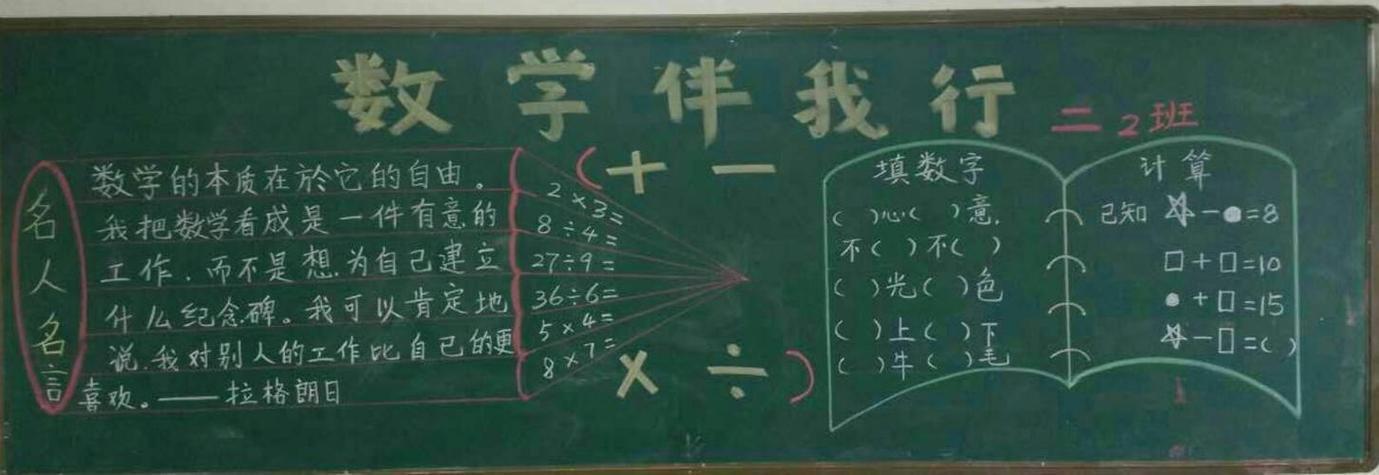 数学伴我行
二2班
名人名言
数学的本质在於它的自由。
我把数学看成是一件有意的
工作,而不是想为自己建立
什么纪念碑。我可以肯定地
说,我对别人的工作比自己的更
喜欢。——拉格朗日
2×3=
8÷4=
27÷9=
36÷6=
5×4=
8×7=
(+ -
× ÷)
填数字
( )心( )意,
不( )不( )
( )光( )色
( )上( )下
( )牛( )毛
计算
已知 ☆-●=8
□+□=10
●+□=15
☆-□=( )